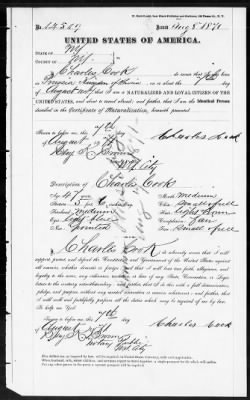 No. 14589 Issued Aug 8 1871
UNITED STATES OF AMERICA.
STATE OF NY
COUNTY OF NY
I, Charles Cook do swear that I was born in
August and that I am a NATURALIZED AND LOYAL CITIZEN OF THE
UNITED STATES, and about to travel abroad; and further, that I am the Identical Person
described in the Certificate of Naturalization, herewith presented
Sworn to before me, this 7th day
of August 1871 Charles Cook
NY City
Description of Charles Cook
Age: 47 Mouth: medium
Stature: 5 ft 6 Chin: Small & full
Forehead: medium Hair: light brown
Eyes: light blue Complexion: Fair
Nose: pointed Face: Small & full
I, Charles Cook do solemnly swear that I will
support, protect, and defend the Constitution and Government of the United States against
all enemies, whether domestic or foreign; and that I will bear true faith, allegiance, and
loyalty to the same, any ordinance, resolution, or law of any State, Convention, or Legis-
lature to the contrary notwithstanding; and further, that I do this with a full determination,
pledge, and purpose, without any mental reservation or evasion whatsoever; and further, that
I will well and faithfully perform all the duties which may be required of me by law.
So help me God.
Sworn to before me, this 7th day
of August 1871 Charles Cook
Notary Public
NY City